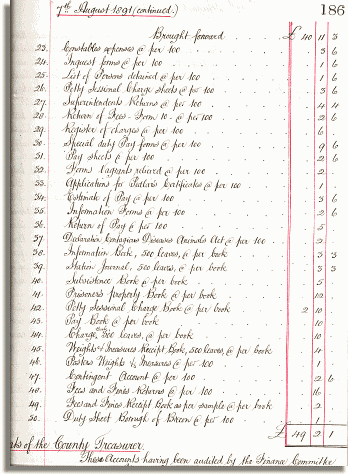 7th August 1891 (continued.) 186
Brought forward £ 40 11 3
23. Constables expenses @ per 100 3 6
24. Inquest forms @ per 100 1 6
25. List of Persons detained @ per 100 1 6
26. Petty Sessional Charge Sheets @ per 100 3 6
27. Superintendents Returns @ per 100 4 4
28. Return of Fees Form 10. @ per 100 2 6
29. Register of charges @ per 100 6
30. Special duty Pay forms @ per 100 9 6
31. Pay sheets @ per 100 2 6
32. Forms Vagrants relieved @ per 100 2
33. Applications for Pedlars Certificates @ per 100 1
34. Estimate of Pay @ per 100 3 6
35. Information Forms @ per 100 2 6
36. Return of Pay @ per 100 5
37. Declaration Contagious Diseases Animals Act @ per 100 2
38. Information Book, 500 leaves, @ per book 3 3
39. Station Journal, 500 leaves, @ per book 3 3
40. Subsistence Book @ per book 5
41. Prisoners property Book @ per book 12
42. Petty Sessional Charge Book @ per book 2 10
43. Pay Book @ per book 10
44. Charge, 500 leaves, @ per book 10
45. Weights & Measures Receipt Book, 500 leaves @ per book 4
46. Posters Weights & Measures @ per 100 1
47. Contingent Account @ per 100 2 6
48. Fees and Fines Returns @ per 100 16
49. Fee and Fines Receipt Book as per sample @ per book 2
50. Duty Sheet Borough of Brecon @ per 100 1
£ 49 2 1
of the County Treasurer.
These Accounts having been audited by the Finance Committee